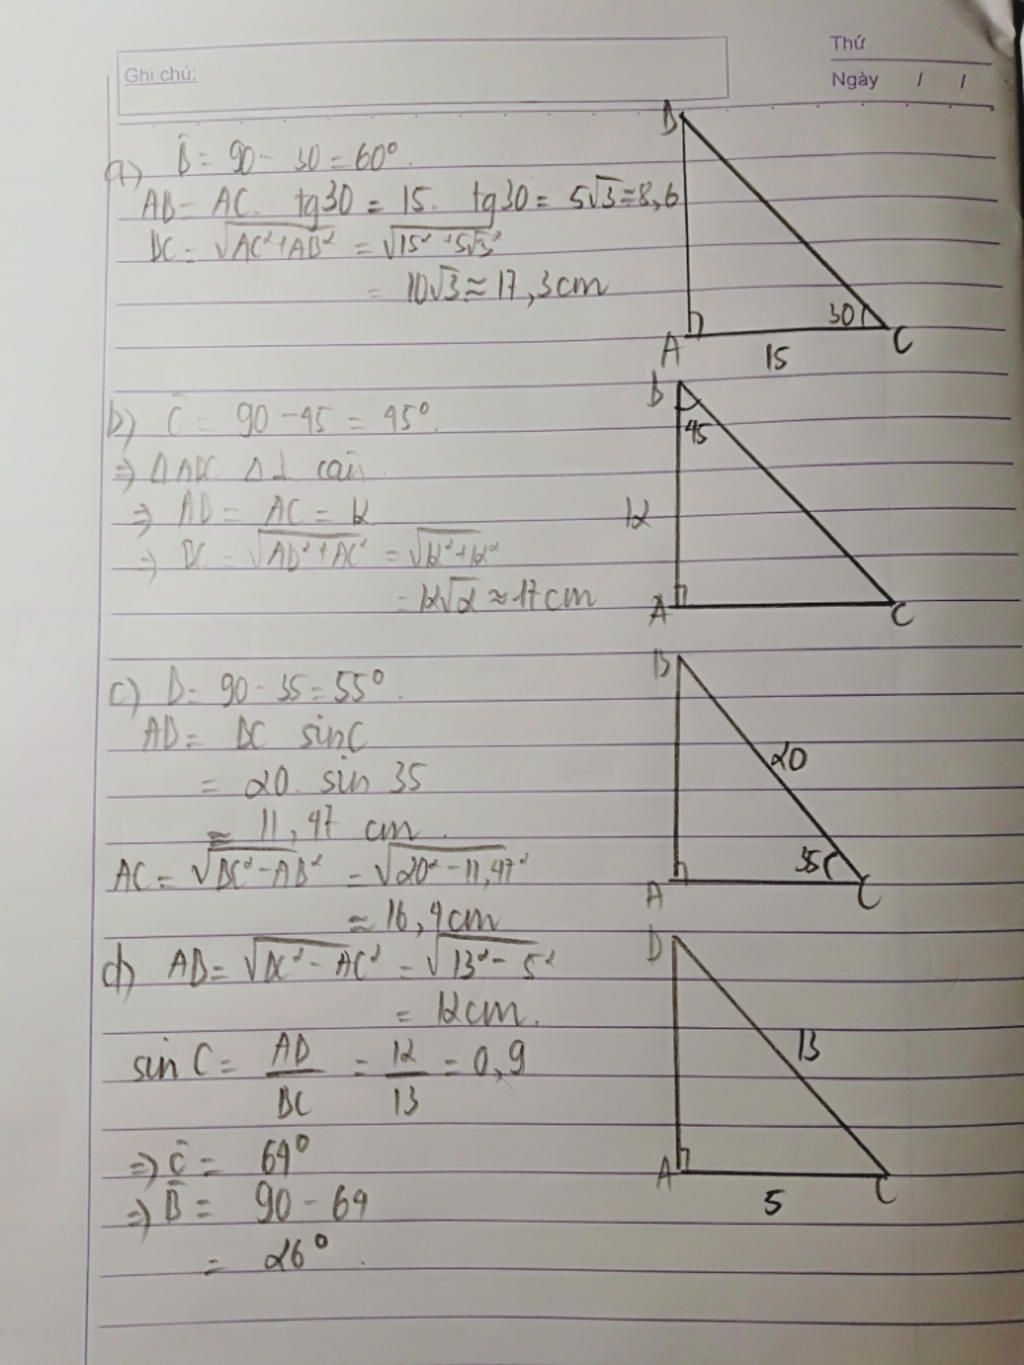 Thứ
Ghi chú:
Ngày / /
a) B̂ = 90 - 30 = 60°.
AB = AC. tg30 = 15. tg30 = 5√3 ≈ 8,6
BC = √AC²+AB² = √15²+5√3²
= 10√3 ≈ 17,3cm
B
30
A
15
C
b) Ĉ = 90 - 45 = 45°.
⇒ ΔABC Δ⊥ cân
⇒ AB = AC = 12
⇒ BC = √AB²+AC² = √12²+12²
= 12√2 ≈ 17cm
B
45
12
A
C
c) B = 90 - 35 = 55°.
AB = BC sinC
= 20. sin 35
≈ 11,47 cm.
AC = √BC²-AB² = √20²-11,47²
≈ 16,4cm
B
20
35
A
C
d) AB = √BC²-AC² = √13²-5²
= 12cm.
sin C = AB/BC = 12/13 = 0,9
⇒ Ĉ = 64°
⇒ B̂ = 90 - 64
= 26°.
B
13
A
5
C